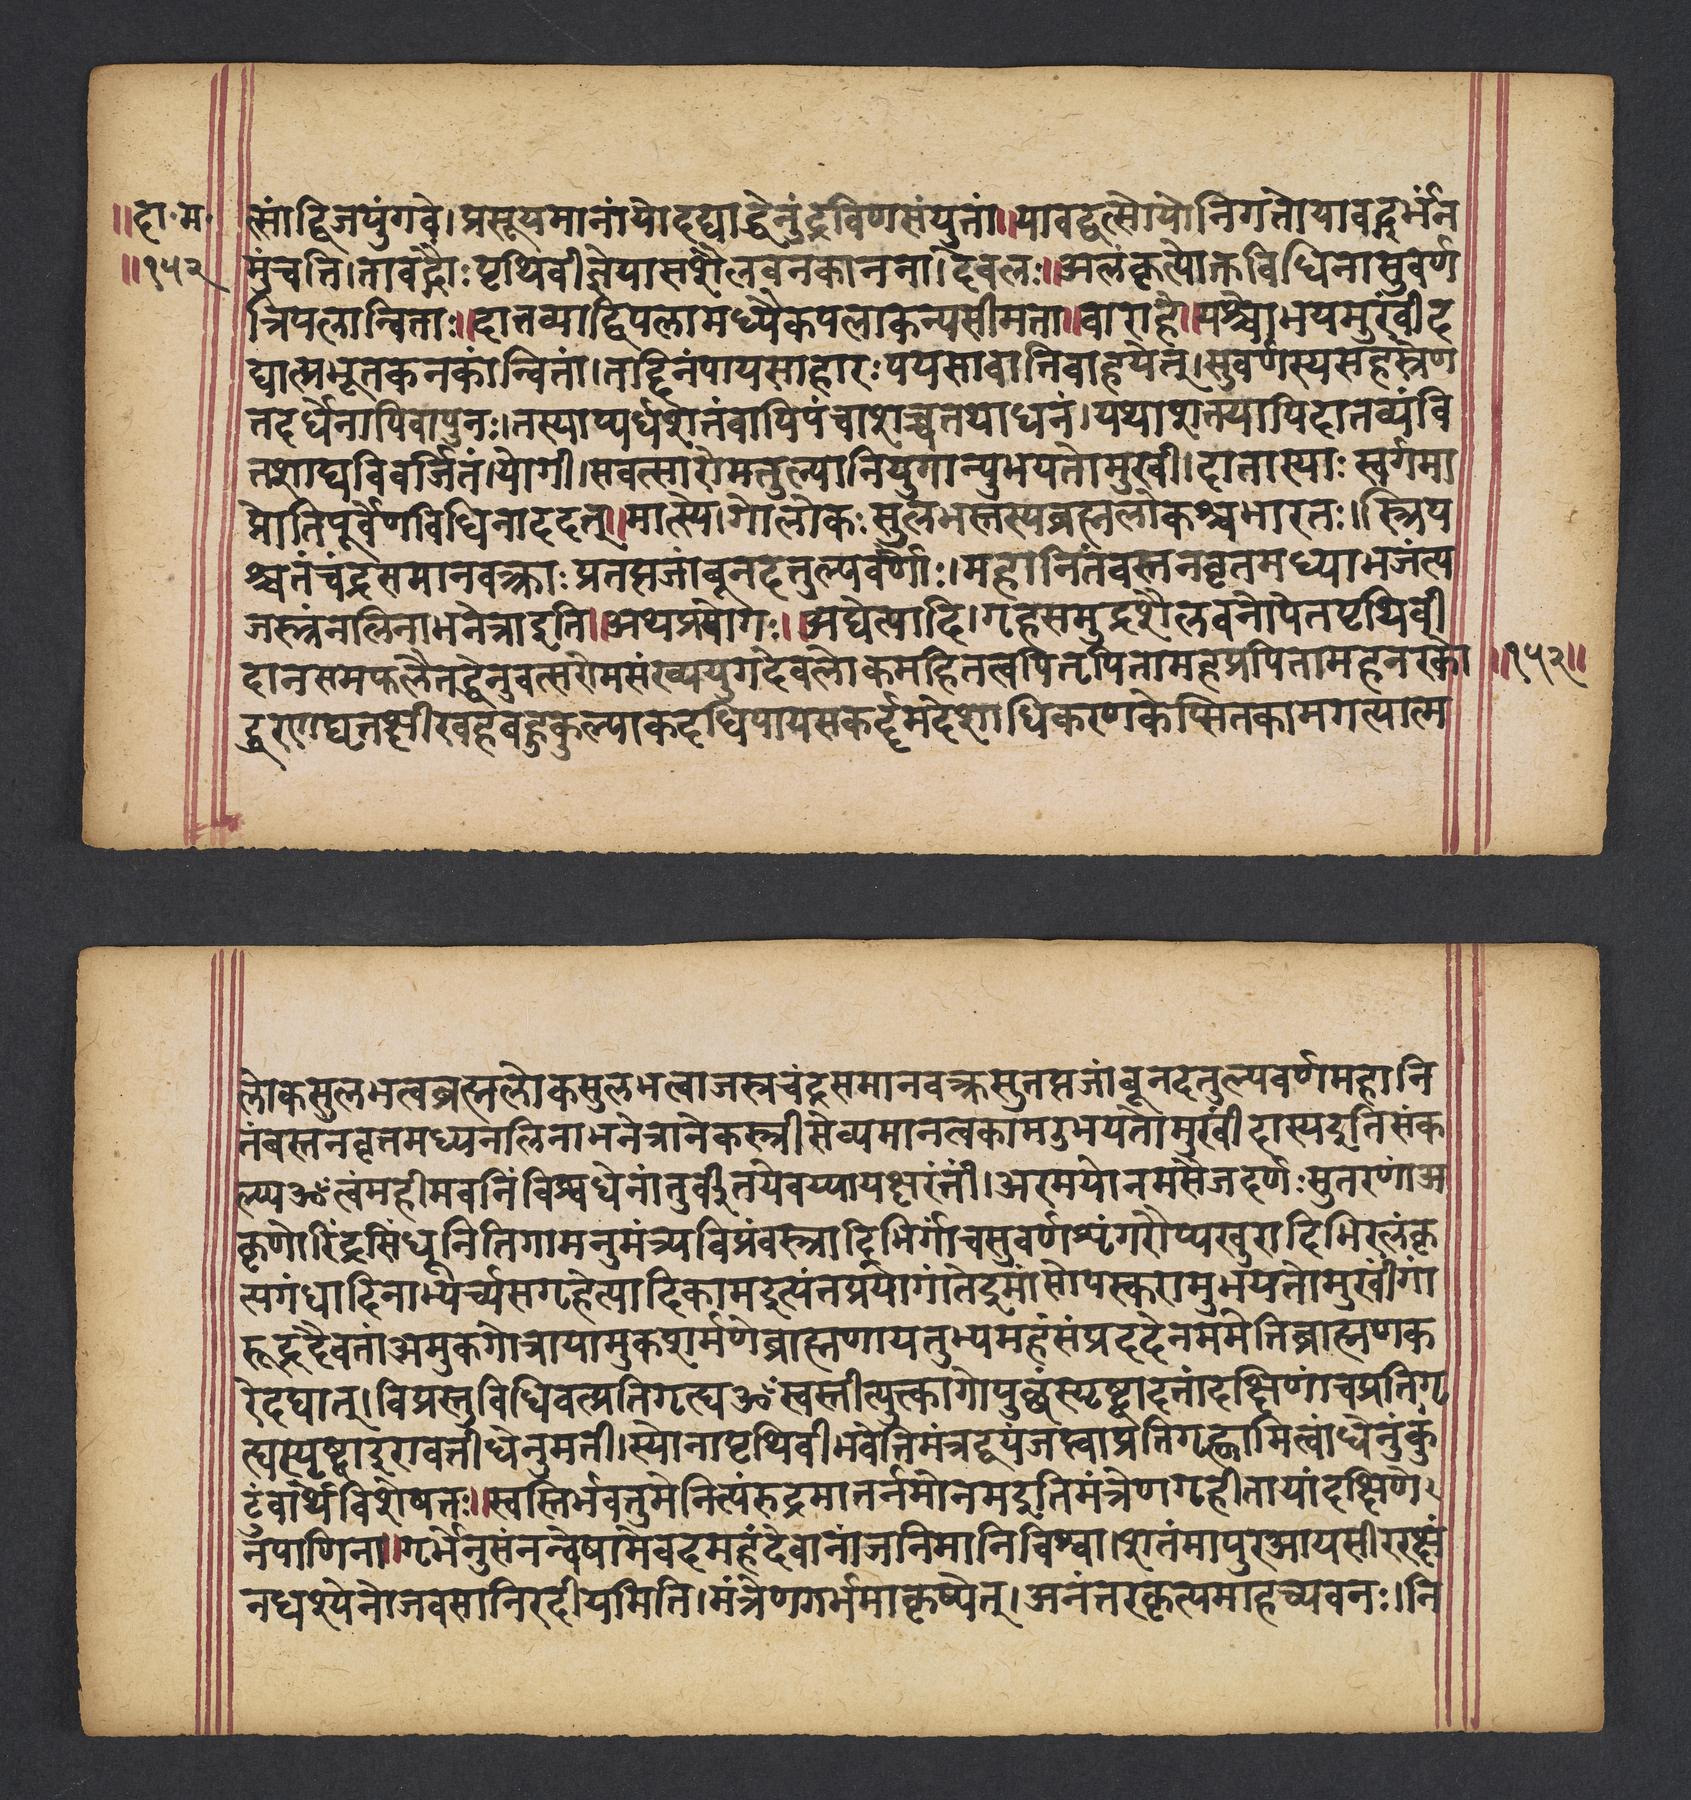 ॥दा॰म॰
॥१५२
त्सां द्विजपुंगवे। प्रसूयमानांयोदद्याद्धेनुंद्रविणसंयुतां॥यावद्वत्सोयोनिगतोयावद्गर्भंन
मुंचति।तावद्गौःपृथिवीज्ञेयासशैलवनकानना।देवलः॥अलंकृत्योक्तविधिनासुवर्ण
त्रिपलान्विताः॥दातव्याद्विपलामध्यैकपलाकन्यसीमता॥वाराहे॥यश्चोभयमुखींद
द्यात्प्रभूतकनकांन्वितां।तद्दिनंपायसाहारःपयसावातिवाहयेत्।सुवर्णस्यसहस्रेण
तदर्धेनापिवापुनः।तस्याप्यर्धशतंवापिपंचाशच्चतथाधनं।यथाशक्त्यापिदातव्यंवि
तशाघविवर्जितं।योगी।सवत्सारोमतुल्यानियुगान्युभयतोमुखी।दातास्याः स्वर्गमा
प्नोतिपूर्वेणविधिनाददत्॥मात्स्ये।गोलोकः सुलभस्तस्यब्रह्मलोकश्चभारतः।स्त्रियप
श्चतंचंद्रसमानवक्त्राः प्रतप्तजांबूनदतुल्यवर्णाः।महानितंबस्तनवृतमध्याभजंत्य
जस्त्रंनलिनाभनेत्राइति॥अथप्रयोगः॥अद्येत्यादि।गहसमुद्रशैलवनोपेतपृथिवी
दानसमफलैतद्धेनुवत्सरोमसंख्ययुगदेवलोकमहितत्वपितृपितामहप्रपितामहनरको
॥१५२॥
द्धरणघृतक्षीरवहबहुकुल्याकदधिपायसकर्द्दमदेशाधिकरणकेप्सितकामगत्यात्म
लोकसुलभत्वब्रह्मलोकसुलभत्वाजस्त्रचंद्रसमानवक्त्रसुतप्तजांबूनदतुल्यवर्णमहानि
तंबस्तनवृत्तमध्यनलिनाभनेत्रानेकस्त्रीसेव्यमानत्वकामउभयतोमुखींदास्यइतिसंक
ल्प्यॐत्वंमहीमवनिंविश्वधेनांतुर्वीतयेवय्यायक्षरंतीं।अरमयोनमसैजदर्णःसुतरणांअ
कृणोरिंद्रसिंधूनितिगामनुमंत्र्यविप्रंवस्त्रादिभिर्गांचसुवर्णशृंगरौप्यखुरादिभिरलंकृ
त्यगंधादिनाभ्यर्च्यसगहेत्यादिकामइत्यंतप्रयोगांतेइमांसोपस्करामुभयतोमुखींगां
रूद्रदैवतांअमुकगोत्रायामुकशर्मणेब्राह्मणायतुभ्यमहंसंप्रददेनममेतिब्राह्मणक
रेदद्यात्।विप्रस्तुविधिवत्प्रतिगृत्यॐस्वस्तीत्युक्तागोपुच्छंस्पृष्ट्वादत्तांदक्षिणांचप्रतिगृ
त्यस्पृष्ट्वाइरावतीधेनुमती।स्योनापृथिवीभवेतिमंत्रद्वयंजप्त्वाप्रतिगृह्णामित्वांधेनुंकु
टुंबार्थेविशेषतः॥स्वस्तिर्भवतुमेनित्यंरुद्रमातर्नमोनमइतिमंत्रेणगृहीतायांदक्षिणे
नपाणिना॥गर्भेनुसंनन्वेषामवेदमहंदेवानांजनिमानिविश्वा।शतंमापुरआयसीररक्षं
नधश्येनोजवसानिरदीयमिति।मंत्रेणगर्भमाकृष्येत्।अनंतरकृत्यमाहच्यवनः।नि